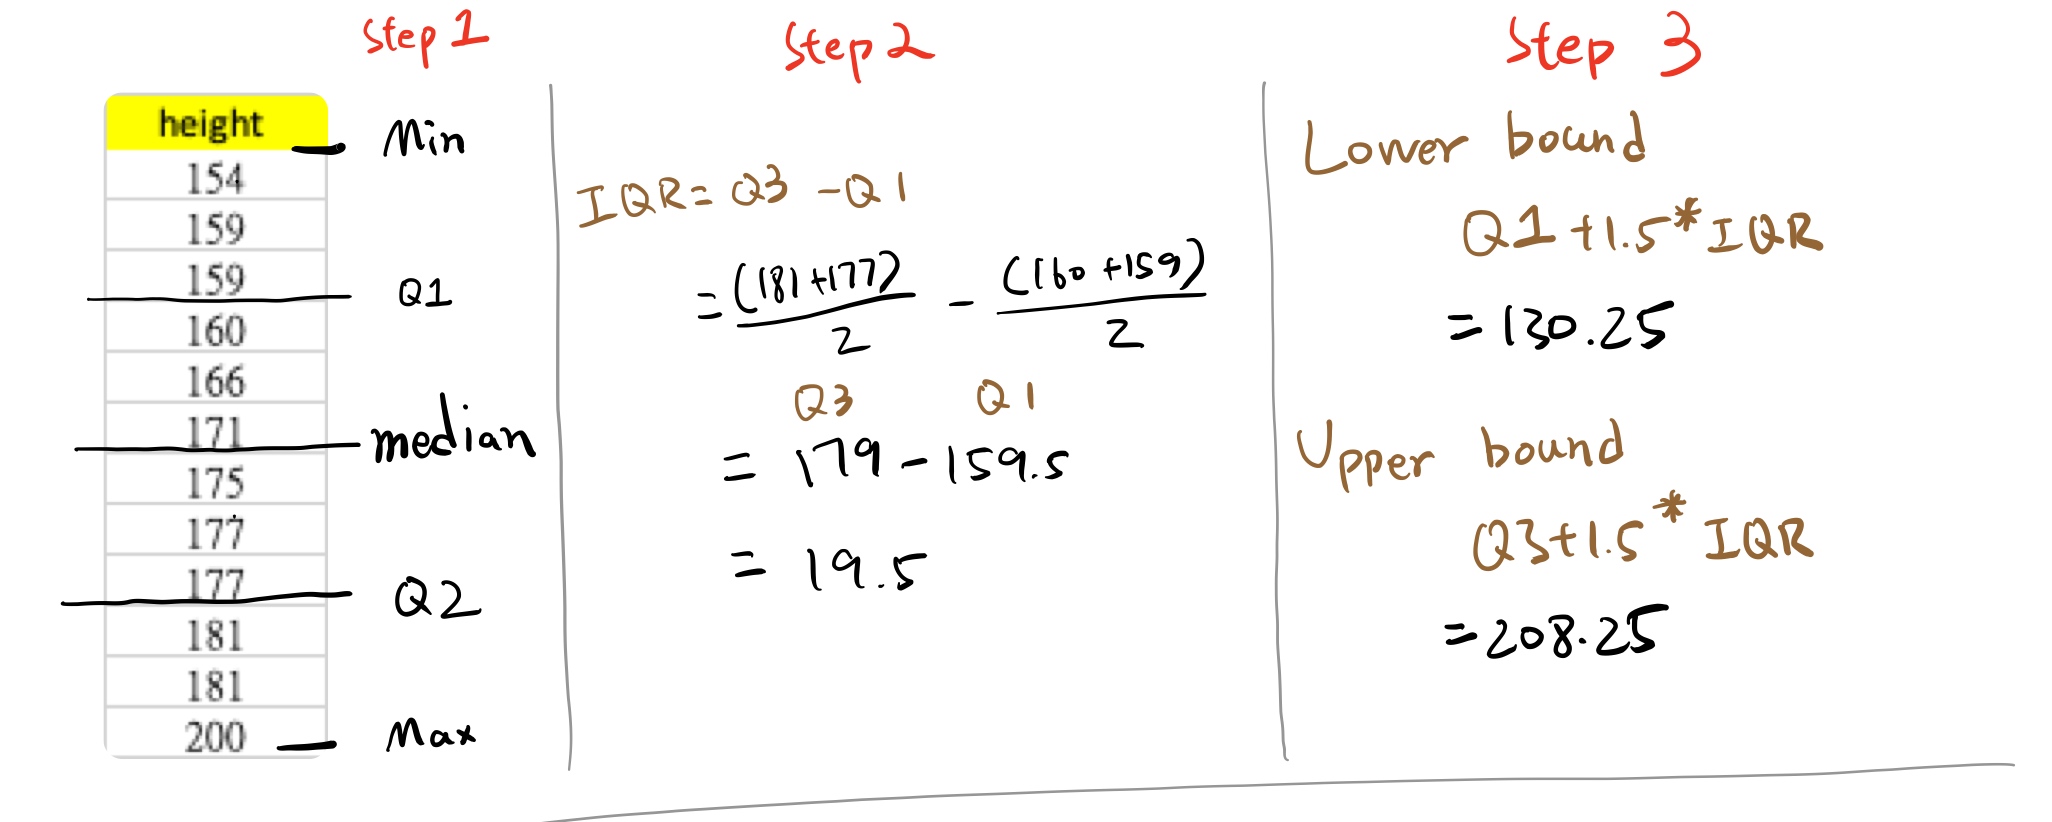 Step 1
height
Min
154
159
159
Q1
160
166
171
median
175
177
177
Q2
181
181
200
Max
Step 2
IQR = Q3 - Q1
= (181+177)/2 - (160+159)/2
Q3 Q1
= 179 - 159.5
= 19.5
Step 3
Lower bound
Q1 + 1.5 * IQR
= 130.25
Upper bound
Q3 + 1.5 * IQR
= 208.25